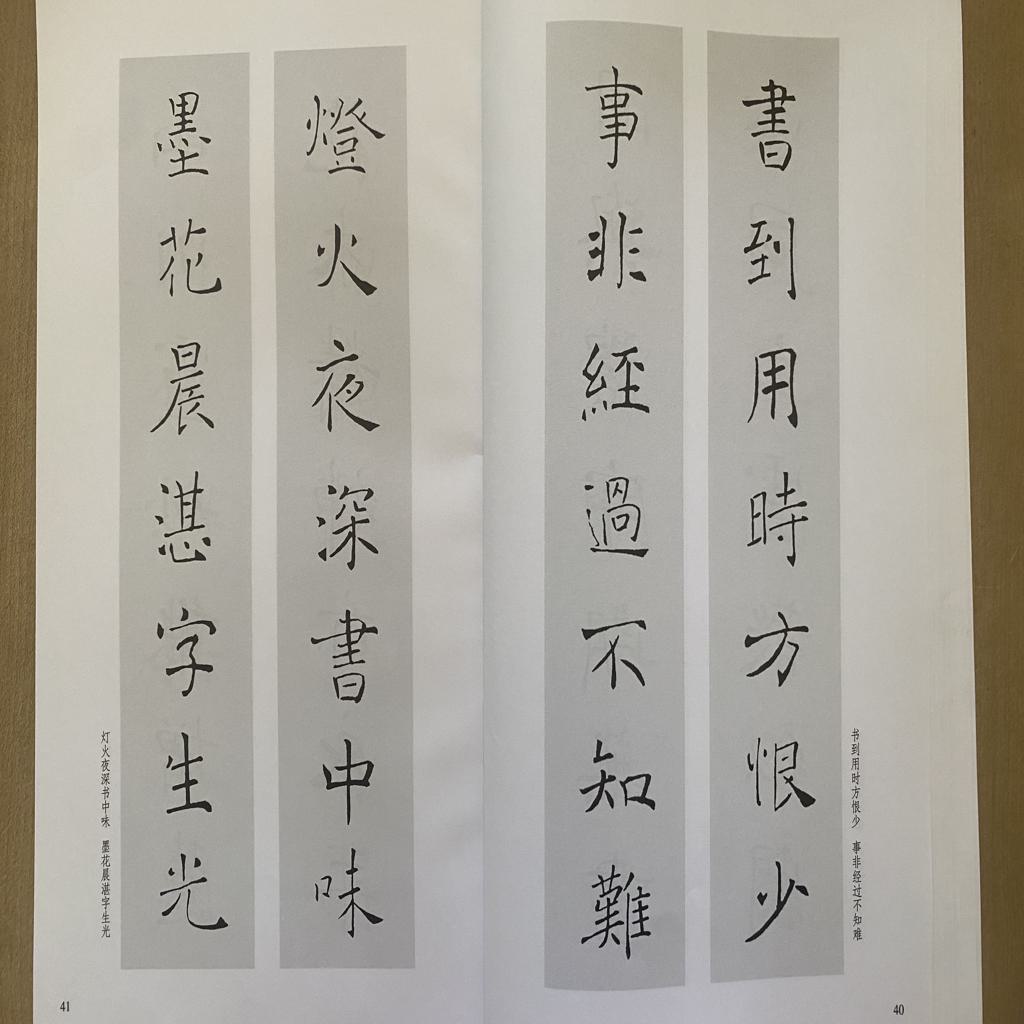 書到用時方恨少
事非經過不知難
书到用时方恨少 事非经过不知难
40
燈火夜深書中味
墨花晨湛字生光
灯火夜深书中味 墨花晨湛字生光
41